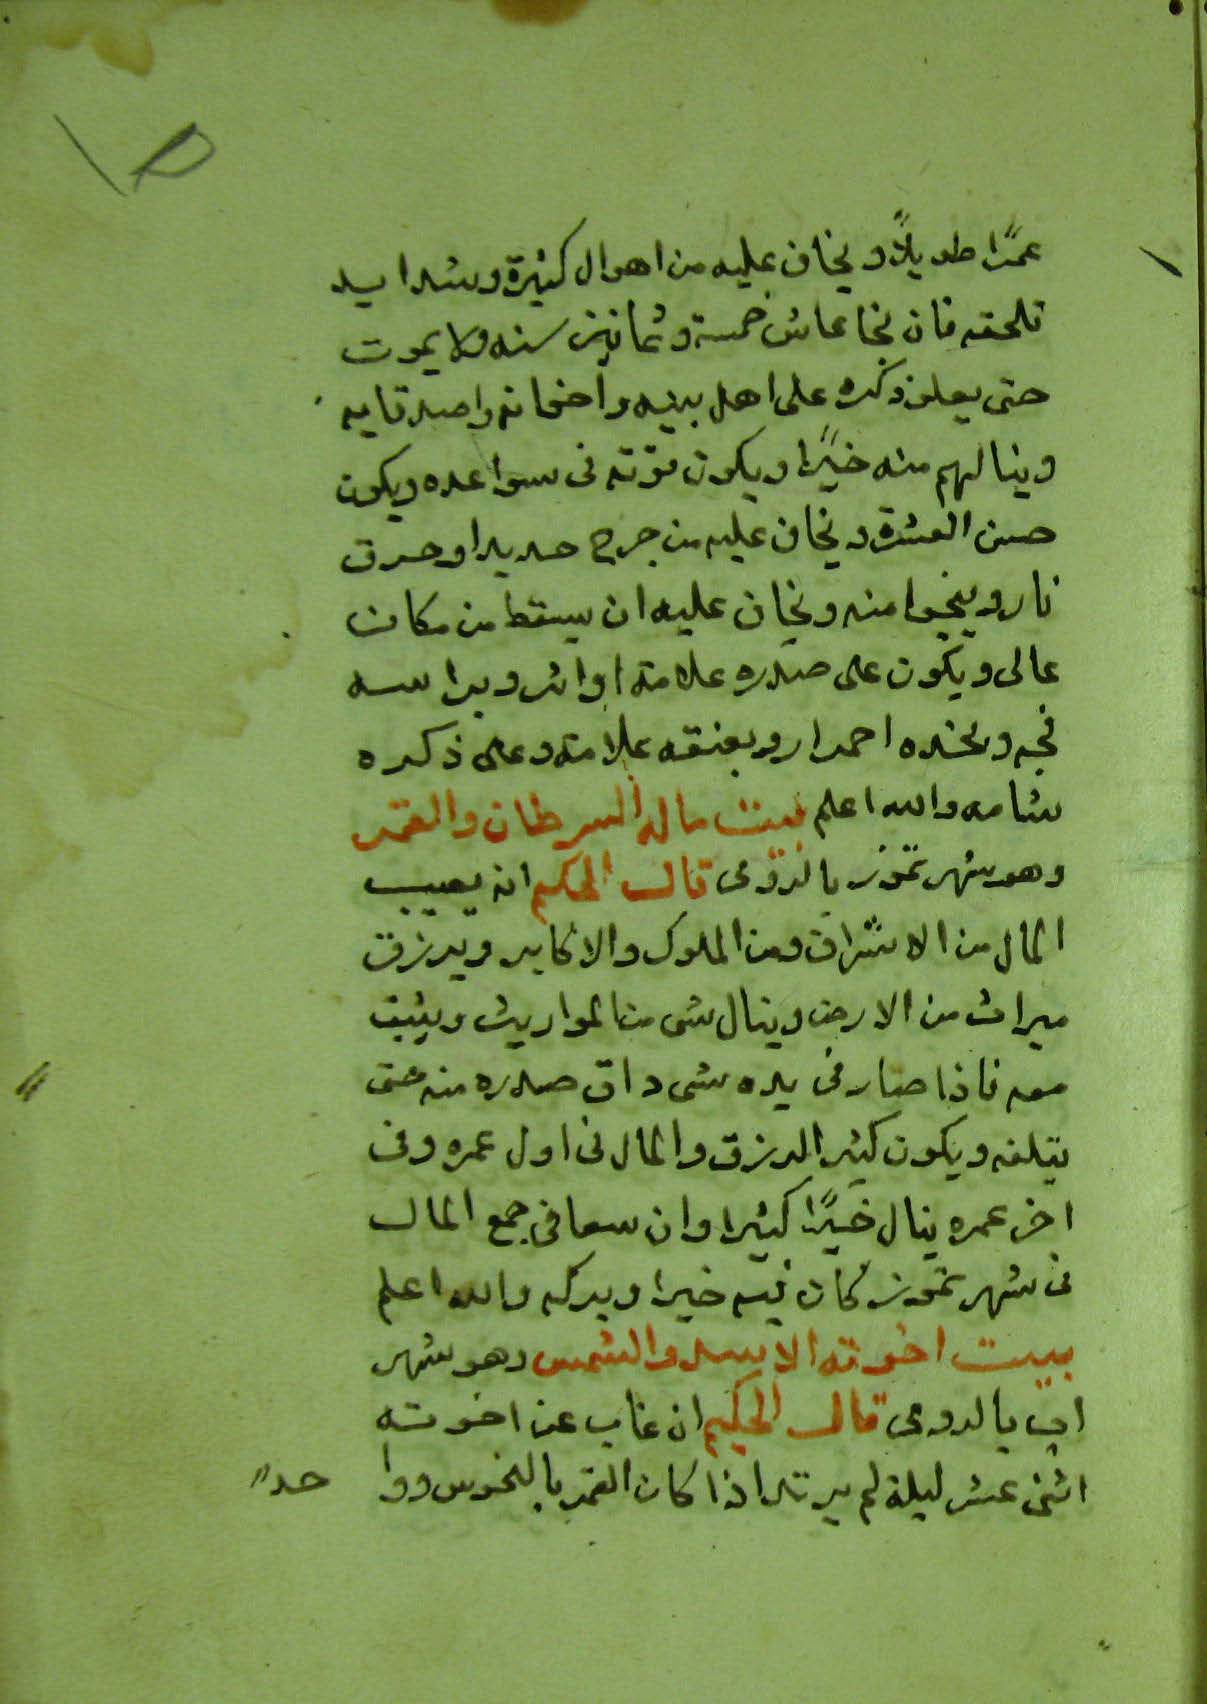 عمرًا طويلاً ويخاف عليه من اهوال كثيرة وشدايد
تلحقه فان نجا عاش خمسة وثمانين سنه ولا يموت
حتى يعلو ذكره على اهل بيته واخوانه واصدقايه
وينالهم منه خيرًا ويكون قوته فى سواعده ويكون
حسن العشرة ويخاف عليه من جرح حديد او حرق
نار وينجوا منه ويخاف عليه ان يسقط من مكان
عالى ويكون على صدره علامة او اثر وبراسه
فجه وبخده احمرار وبعنقه علامة وعلى ذكره
شامه والله اعلم بيت ماله السرطان والقمر
وهو شهر تموز بالرومى قال الحكيم انه يصيب
المال من الاشراف ومن الملوك والاكابر ويرزق
ميراث من الارض وينال شى من المواريث ويثبت
معه فاذا صار فى يده شى داق صدره منه حتى
يتلفه ويكون كثير الرزق والمال فى اول عمره وفى
اخر عمره ينال خيرًا كثيرا وان سعا فى جمع المال
فى شهر تموز كان فيه خيرا وبركه والله اعلم
بيت اخوته الاسد والشمس وهو شهر
اب بالرومى قال الحكيم ان غاب عن اخوته
اثنى عشر ليلة لم يرتد اذا كان القمر بالنحوس ووا حد